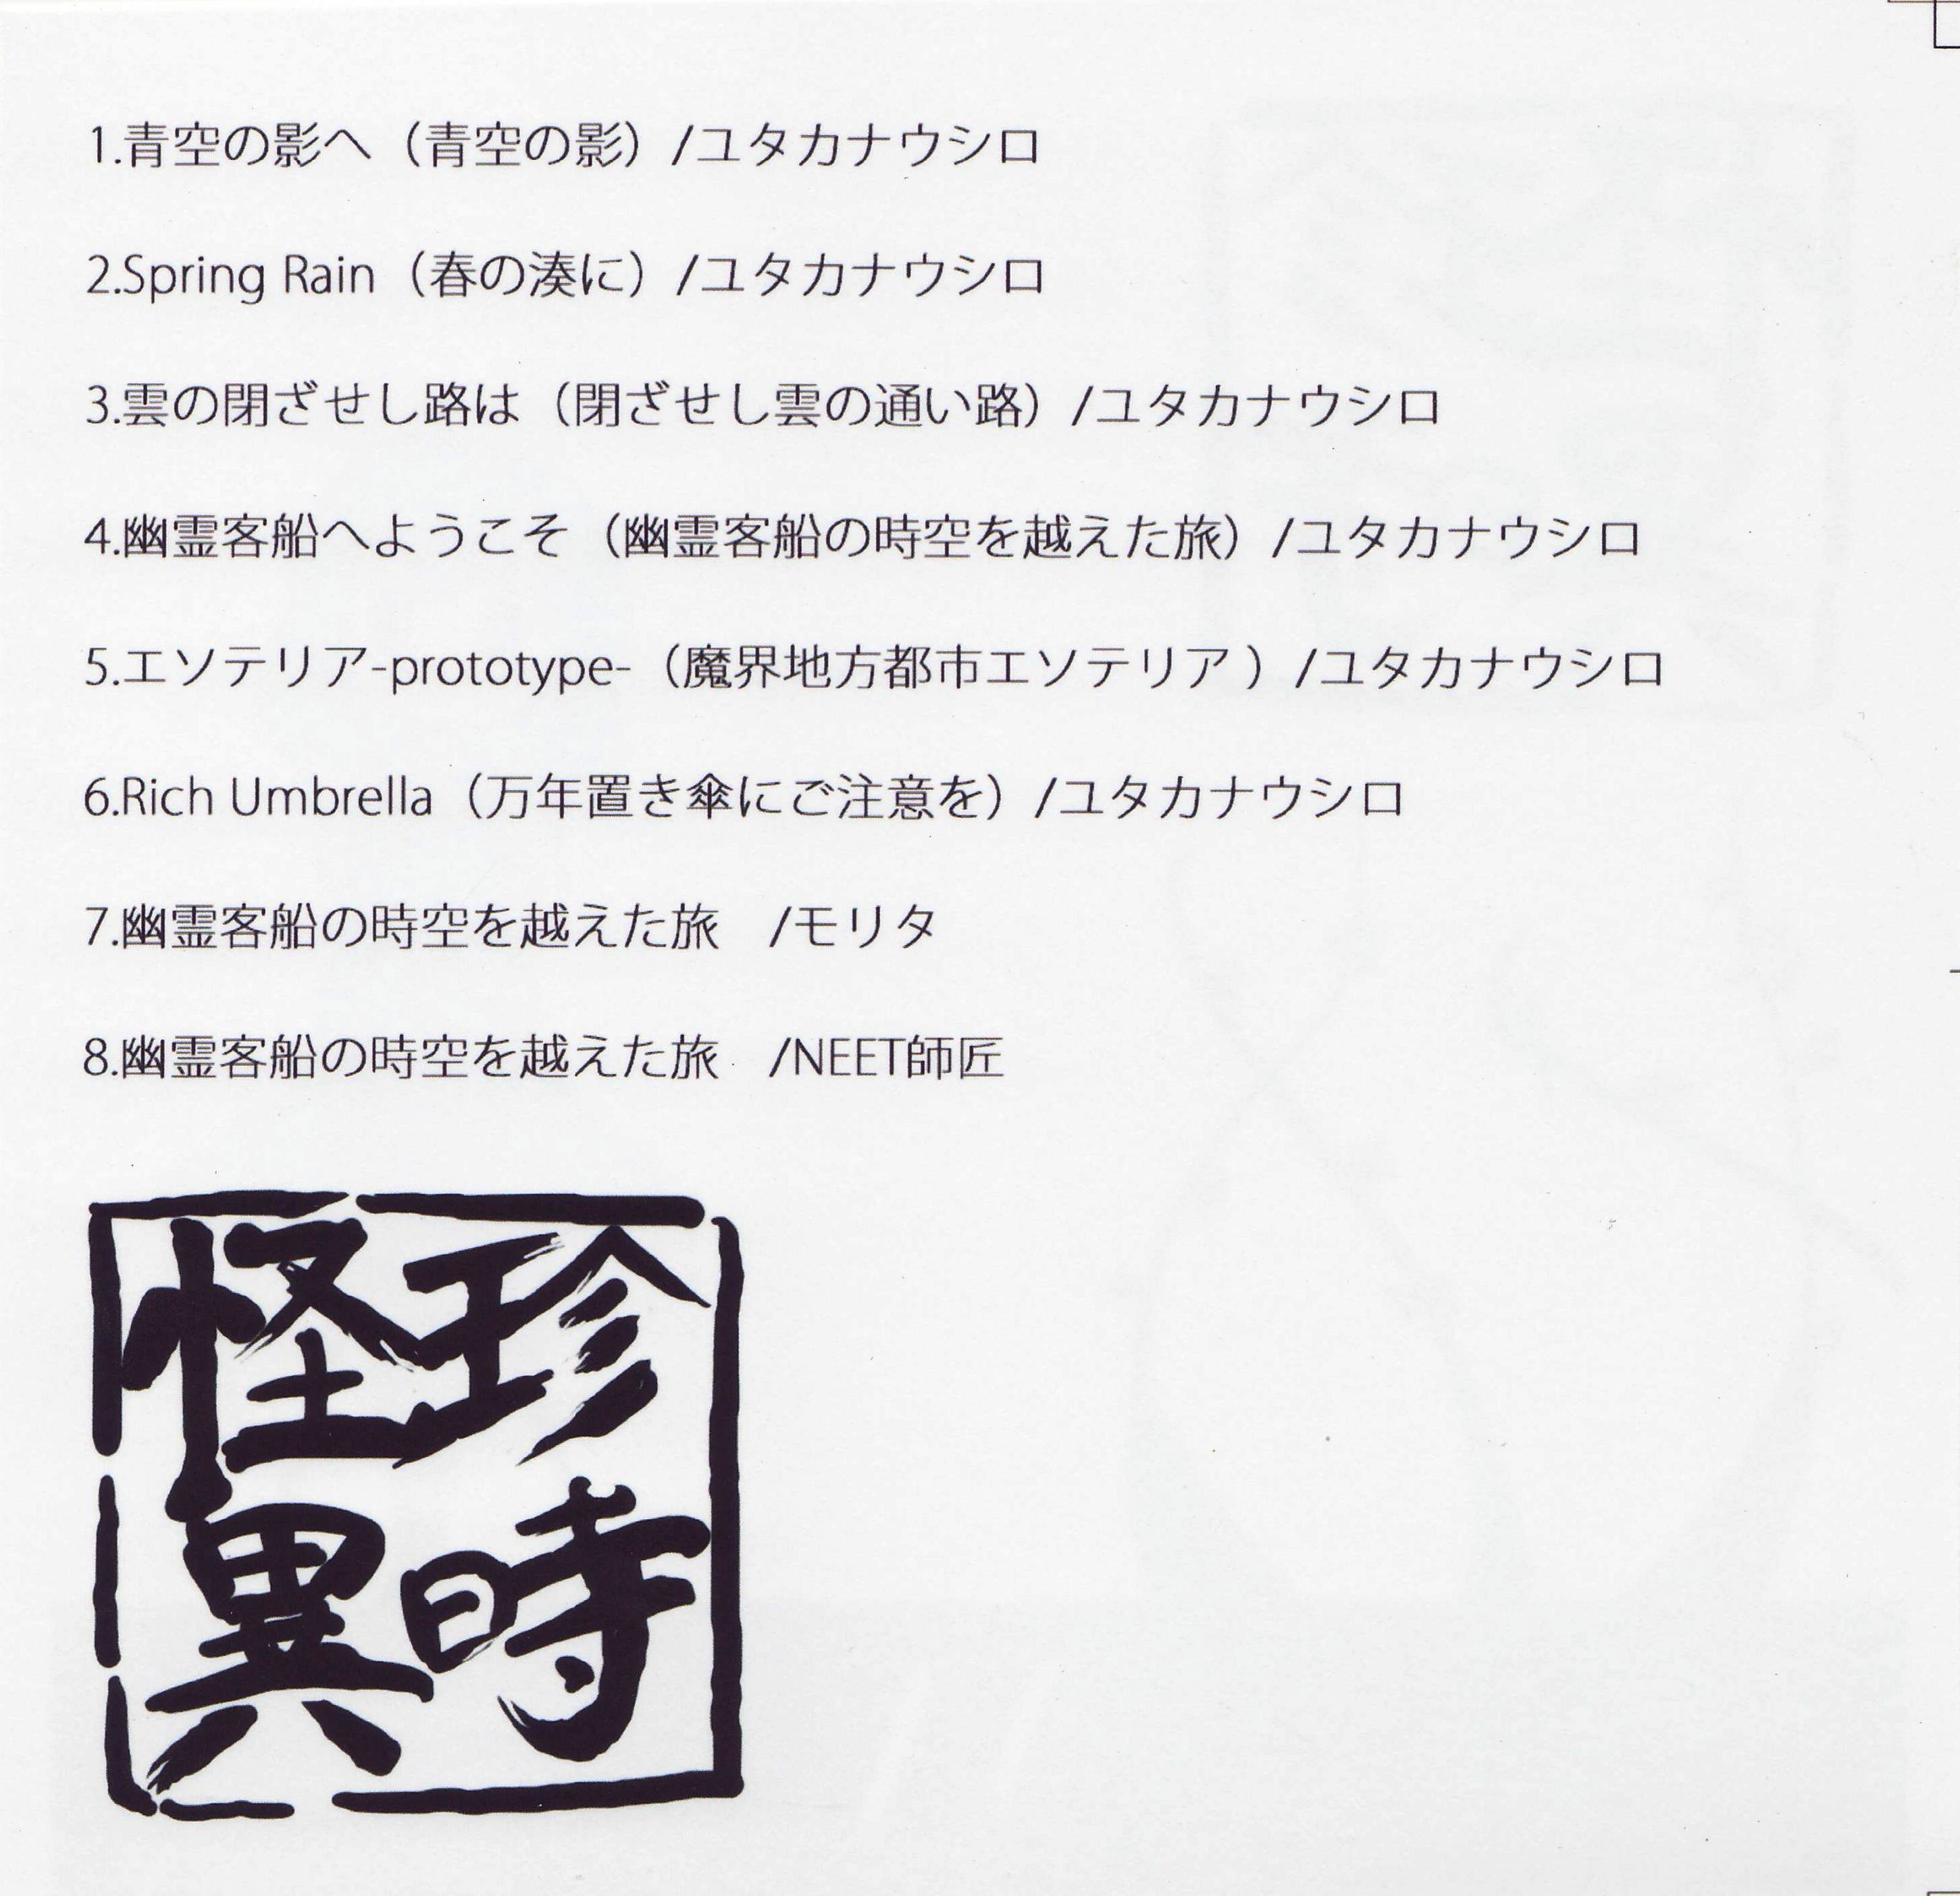 1.青空の影へ（青空の影）/ユタカナウシロ
2.Spring Rain（春の湊に）/ユタカナウシロ
3.雲の閉ざせし路は（閉ざせし雲の通い路）/ユタカナウシロ
4.幽霊客船へようこそ（幽霊客船の時空を越えた旅）/ユタカナウシロ
5.エソテリア-prototype-（魔界地方都市エソテリア ）/ユタカナウシロ
6.Rich Umbrella（万年置き傘にご注意を）/ユタカナウシロ
7.幽霊客船の時空を越えた旅　/モリタ
8.幽霊客船の時空を越えた旅　/NEET師匠
珍時
怪異